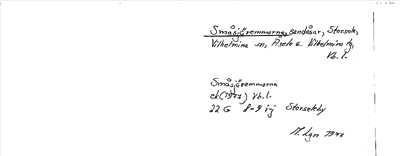 Småsjöremmarna, sandåsar, Storsele,
Vilhelmina sn, Åsele o. Vilhelmina tg,
Vb. l.
Småsjöremmarna
ek (1947) Vb. l.
22 G 8-9 ij Storseleby
M. Lgn 1977